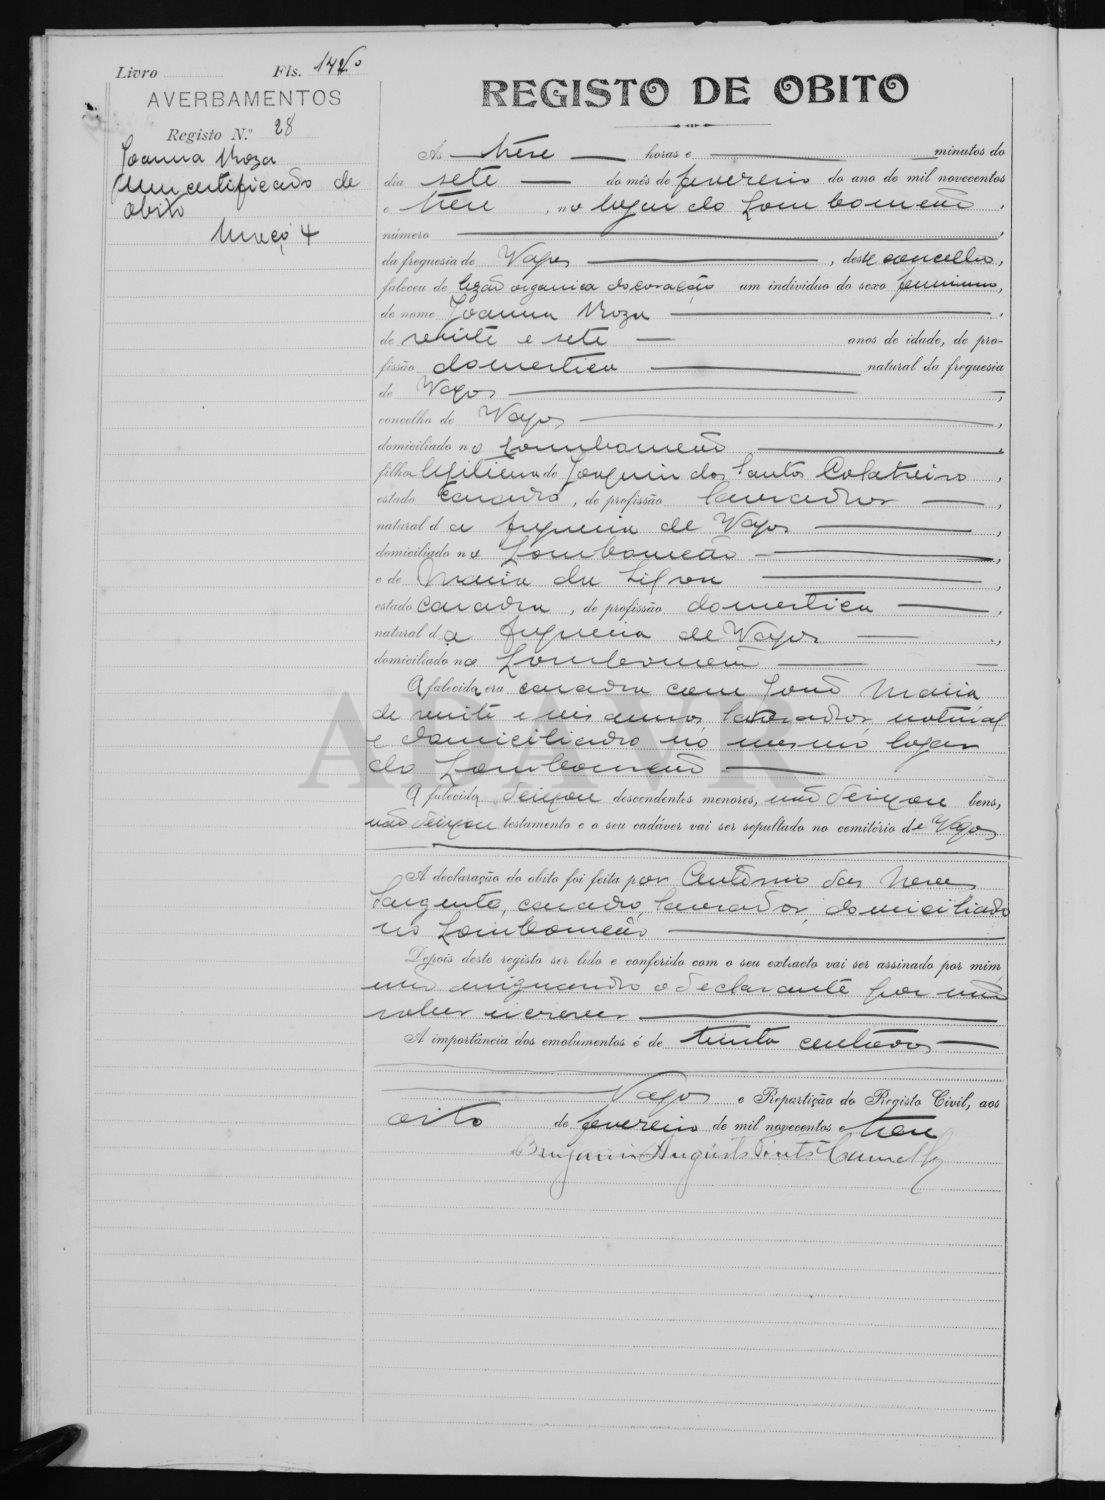 Livro Fls. 14
AVERBAMENTOS
Registo N.º 28
Joanna Roza
Um certificado de
obito
Março 4
REGISTO DE OBITO
Ás trese horas e minutos do
dia sete do mês de fevereiro do ano de mil novecentos
e trese, no logar do Lombomeão,
número
da freguesia de Vagos, deste concelho,
faleceu de lezão organica do coração um individuo do sexo feminino,
de nome Joanna Roza
de vinte e sete anos de idade, de pro-
fissão domestica natural da freguesia
de Vagos,
concelho de Vagos,
domiciliado no Lombomeão,
filha legitima de Joaquim dos Santos Colatreiro,
estado casado, de profissão lavrador,
natural da freguesia de Vagos,
domiciliado no Lombomeão,
e de Maria da Silva,
estado casada, de profissão domestica,
natural da freguesia de Vagos,
domiciliado no Lombomeão
A falecida era casada com José Maria
de vinte e seis annos, lavrador, natural
e domiciliado no mesmo logar
do Lombomeão
A falecida deixou descendentes menores, não deixou bens,
não deixou testamento e o seu cadáver vai ser sepultado no cemitério de Vagos
A declaração do obito foi feita por Antonio das Neves
Sargento, casado, lavrador, domiciliado
no Lombomeão
Depois deste registo ser lido e conferido com o seu extracto vai ser assinado por mim
não assignando o declarante por não
saber escrever
A importância dos emolumentos é de trinta centavos
Vagos e Repartição do Registo Civil, aos
oito de fevereiro de mil novecentos e trese
Benjamin Augusto
ADAVR